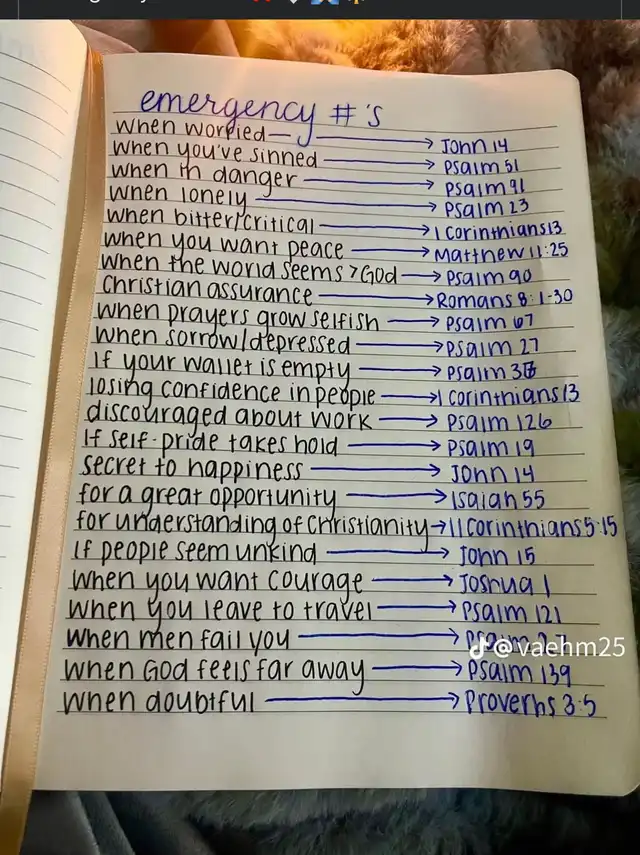 emergency #'s
when worried → John 14
when you've sinned → Psalm 51
when in danger → Psalm 91
when lonely → Psalm 23
when bitter/critical → 1 Corinthians 13
when you want peace → Matthew 11:25
when the world seems > God → Psalm 90
Christian assurance → Romans 8:1-30
when prayers grow selfish → Psalm 67
when sorrow/depressed → Psalm 27
If your wallet is empty → Psalm
losing confidence in people → 1 Corinthians 13
discouraged about work → Psalm 126
If self-pride takes hold → Psalm 19
secret to happiness → John 14
for a great opportunity → Isaiah 55
for understanding of Christianity → 11 Corinthians 5:15
If people seem unkind → John 15
when you want courage → Joshua 1
when you leave to travel → Psalm 121
when men fail you → Psalm 27
@vaehm25
when God feels far away → Psalm 139
when doubtful → Proverbs 3:5